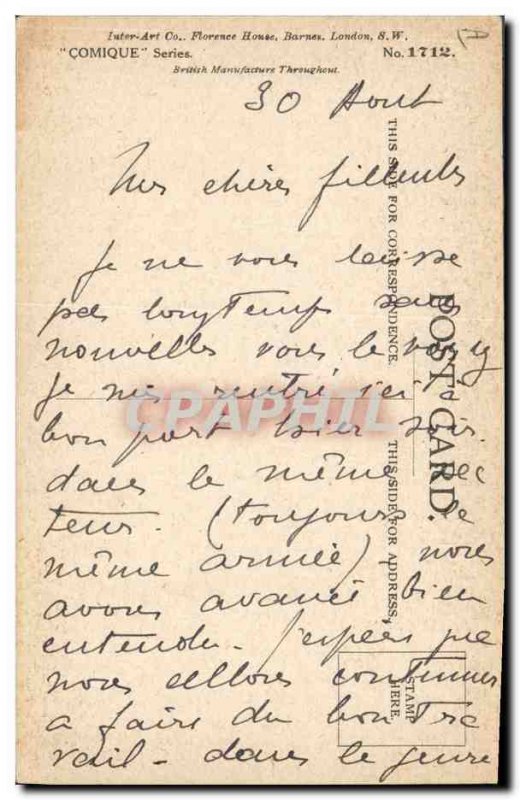 Inter-Art Co., Florence House, Barnes, London, S.W.
"COMIQUE" Series. No. 1712.
British Manufacture Throughout.
30 Aout
Mes chères filleules
Je ne vous laisse
pas longtemps sans
nouvelles vous le voyez
je suis rentré ici à
bon port hier soir
dans le même sec
teur. (toujours la
même armée) nous
avons avancé bien
entendu. J'espère que
nous allons continuer
a faire du bon tra
vail - dans le genre
THIS SIDE FOR CORRESPONDENCE.
THIS SIDE FOR ADDRESS,
POST CARD.
STAMP
HERE.
CPAPHIL